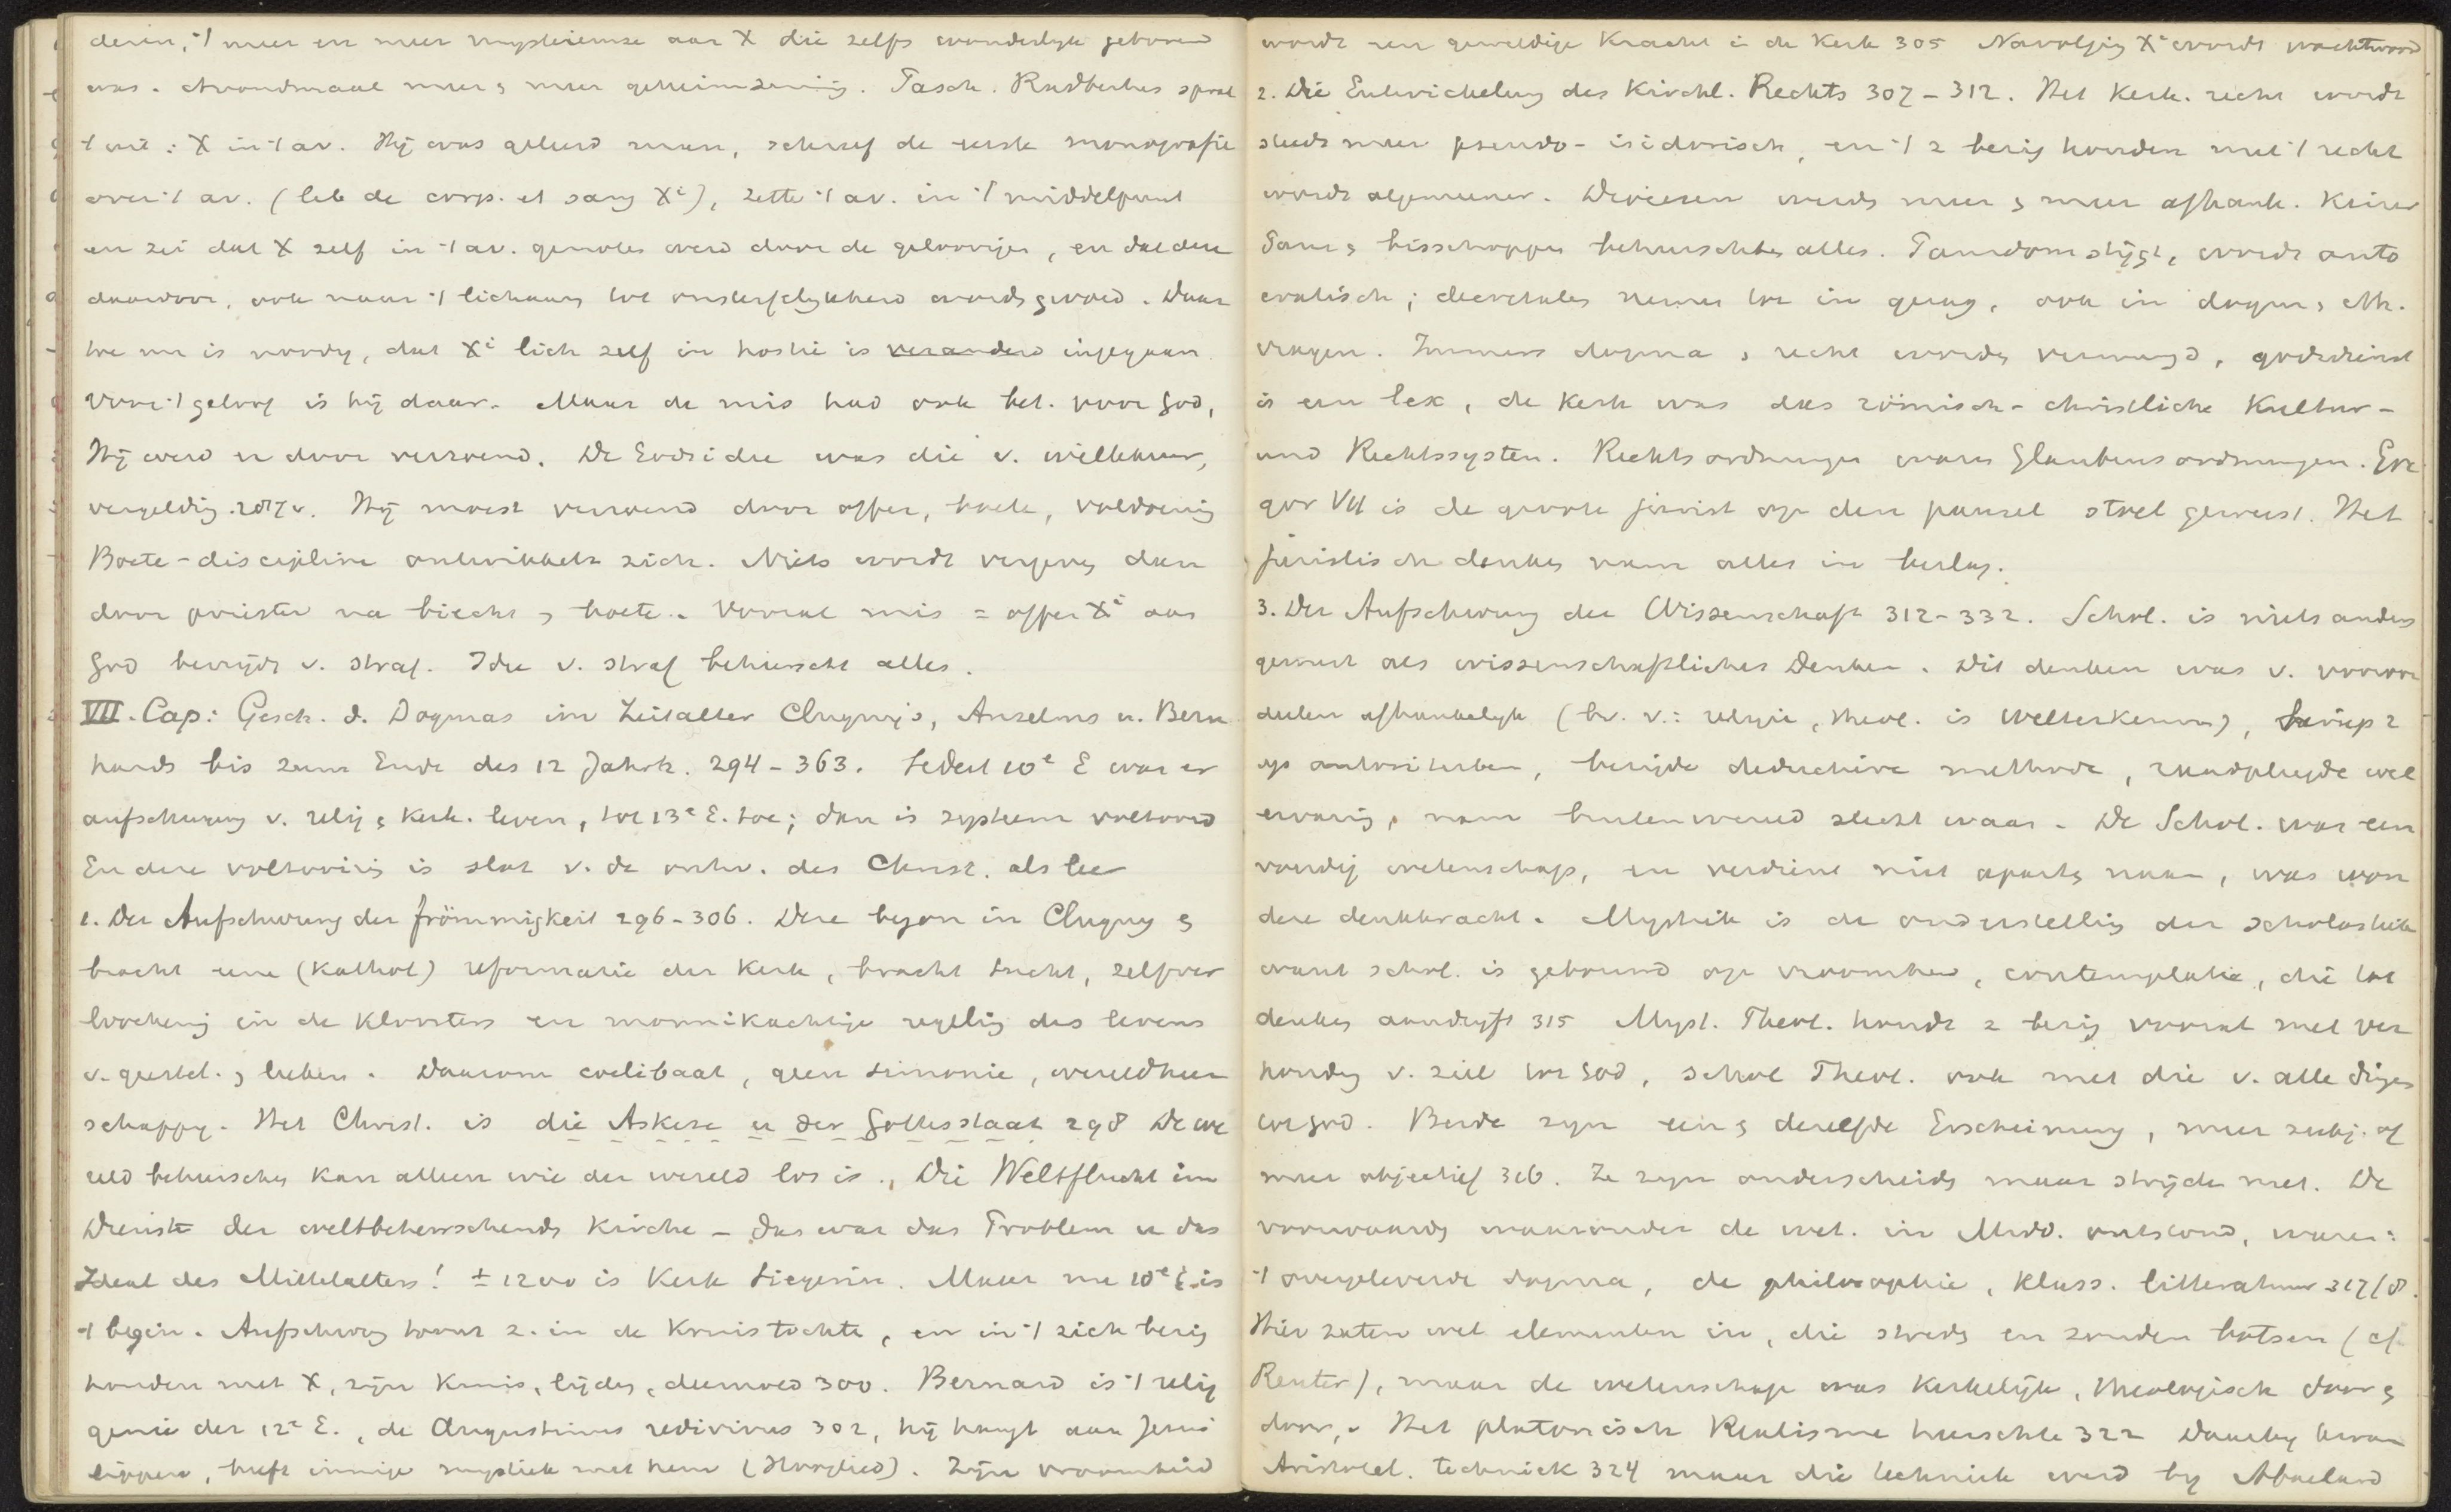 deren, 't meer en meer mysterieuze aan X die zelfs wonderlyk geboren
was. Avondmaal meer & meer geheimzinnig. Pasch. Radbertus sprak
't uit: X in 't av. Hij was geleerd man, schreef de eerste monografie
over 't av. (lib de corp. et sang Xi), zette 't av. in 't middelpunt
en zei dat X zelf in 't av. genoten werd door de geloovigen, en dat deze
daardoor, ook naar 't lichaam tot onsterfelykheid wordt gevoed. Daar
toe nu is noodig, dat Xi lich zelf in hostie is veranderd ingegaan.
Voor 't geloof is hij daar. Maar de mis had ook bet. voor God,
Hij werd er door verzoend. De Godsidee was die v. willekeur,
vergelding 287v. Hij moest verzoend door offer, boete, voldoening
Boete-discipline ontwikkelt zich. Niets wordt vergeven dan
door priester na biecht & boete. Vooral mis = offer Xi aan
God bevrijdt v. straf. Idee v. straf beheerscht alles.
VII. Cap: Gesch. d. Dogmas im Zeitalter Clugny's, Anselms u. Bern
hards bis zum Ende des 12 Jahrh. 294-363. Sedert 10e E was er
aufschwung v. relig & kerk. leven, tot 13e E. toe; dan is systeem voltooid
En deze voltooiing is slot v. de ontw. des Christ. als leer
1. Der Aufschwung der frömmigkeit 296-306. Deze begon in Clugny &
bracht eene (Kathol) reformatie der Kerk, bracht tucht, zelfver
loochening in de kloosters en monnikachtige regeling des levens
v. geestel. & leeken. Daarom coelibaat, geen simonie, wereldheer
schappy. Het Christ. is die Askese u der Gottesstaat 298 De we
reld beheerschen kan alleen wie der wereld los is. Die Weltflucht im
Dienste der weltbeherrschenden Kirche - das war das Problem u das
Ideal des Mittelalters! ± 1200 is Kerk Siegerin. Maar na 10e E is
't begin. Aufschwung toont z. in de Kruistochten, en in 't zich bezig
houden met X, zijn Kruis, lijden, deemoed 300. Bernard is 't relig
genie der 12e E., de Augustinus redivivus 302, hij hangt aan Jezus
lippen, heeft innige mystiek met hem (Hooglied). Zijn vroomheid
wordt een geweldige Kracht in de Kerk 305 Navolging Xi wordt wachtwoord
2. Die Entwickelung des Kirchl. Rechts 307-312. Het Kerk. recht wordt
steeds meer pseudo-isidorisch, en 't z bezig houden met 't recht
wordt algemeener. Diocesen werden meer & meer afhank. Keizer
Paus & bisschoppen beheerschten alles. Pausdom stijgt, wordt auto
cratisch; decretalen nemen toe in gezag, ook in dogm & eth.
vragen. Immers dogma & recht worden vermengd, godsdienst
is een lex, de Kerk was das römisch-christliche Kultur-
und Rechtssystem. Rechtsordnungen waren Glaubensordnungen. Gre
gor VII is de groote jurist op den pausel stoel geweest. Het
juristisch denken nam alles in beslag.
3. Der Aufschwung der Wissenschaft 312-332. Schol. is niets anders
geweest als wissenschaftliches Denken. Dit denken was v. vooroor
deelen afhankelyk (bv. v.: religie, theol. is Welterkennen), beriep z
op autoriteiten, bezigde deductieve methode, raadpleegde wel
ervaring, nam buitenwereld slecht waar. De Schol. was een
voudig wetenschap, en verdient niet aparte naam, was won
dere denkkracht. Mystiek is de onderstelling der scholastiek
want schol. is gebouwd op vroomheid, contemplatie, die tot
denken aandryft 315 Myst. Theol. houdt z bezig vooral met ver
houding v. ziel tot God, schol Theol. ook met die v. alle dingen
tot God. Beide zyn een & dezelfde Erscheinung, meer subj. of
meer objectief 316. Ze zyn onderscheiden maar strijden niet. De
voorwaarden waaronder de wet. in Midd. ontstond, waren:
't overgeleverde dogma, de philosophie, klass. litteratuur 317/8.
Hier zaten wel elementen in, die streden en zouden botsen (cf.
Reuter), maar de wetenschap was kerkelijk, theologisch door &
door. Het platonisch Realisme heerschte 322 Daarby kwam
Aristotel. techniek 324 maar die techniek werd by Abaelard